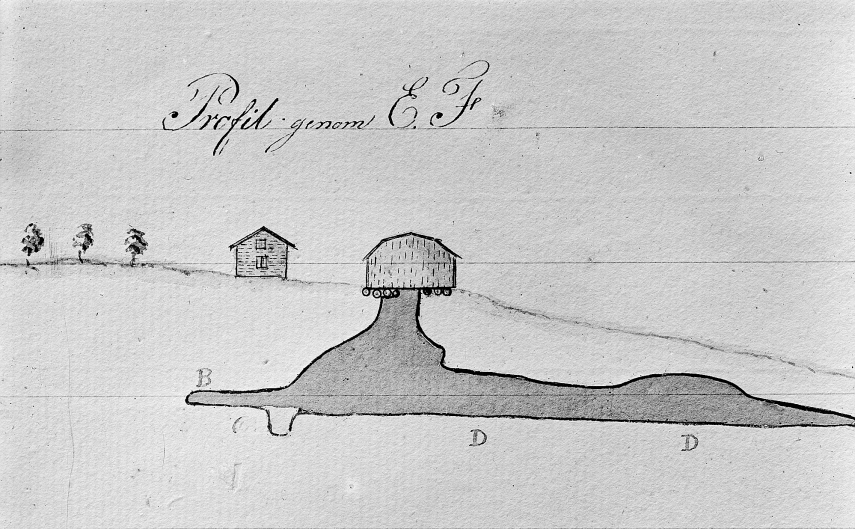 Profil genom E. F
B
C
D
D